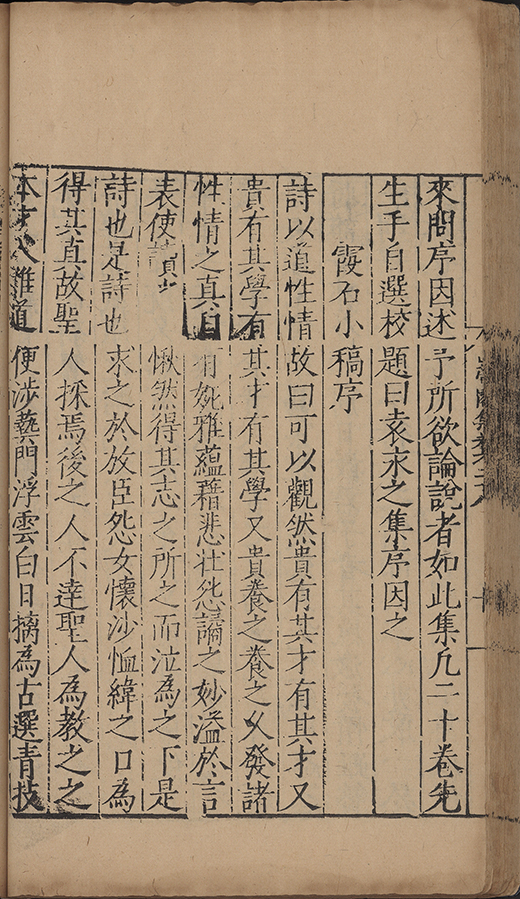 來問序因述予所欲論說者如此集凡二十卷先
生手自選校題曰袁永之集序因之
霞石小稿序
詩以道性情故曰可以觀然貴有其才有其才又
貴有其學有其才有其學又貴養之養之久發諸
性情之真自有婉雅蘊藉悲壯怨譎之妙溢於言
表使讀者愀然得其志之所之而泣為之下是
詩也是詩也求之於放臣怨女懷沙恤緯之口為
得其真故聖人採焉後之人不達聖人為教之之
雖道便涉藝門浮雲白日摛為古選青枝